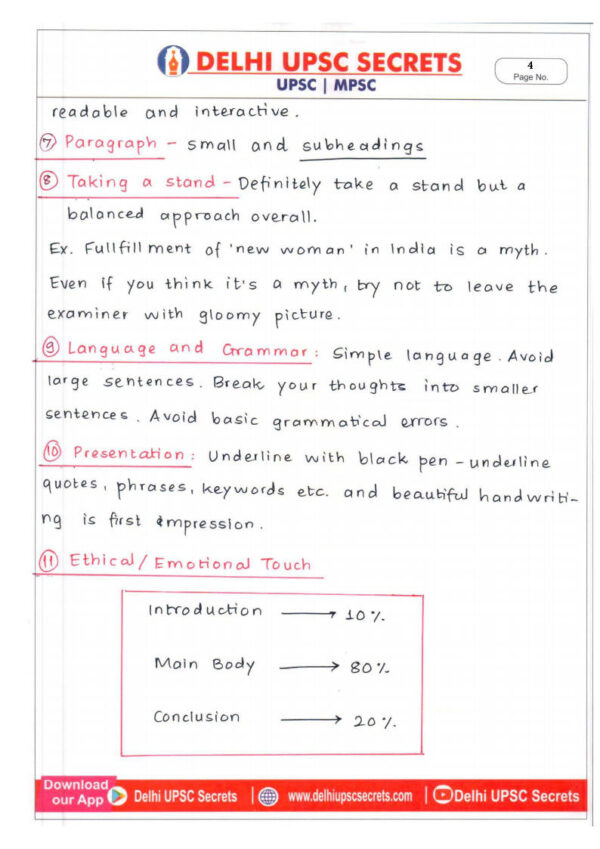 DELHI UPSC SECRETS
UPSC | MPSC
4
Page No.
readable and interactive.
⑦ Paragraph - small and subheadings
⑧ Taking a stand - Definitely take a stand but a
balanced approach overall.
Ex. Fullfillment of 'new woman' in India is a myth.
Even if you think it's a myth, try not to leave the
examiner with gloomy picture.
⑨ Language and Grammar: Simple language. Avoid
large sentences. Break your thoughts into smaller
sentences. Avoid basic grammatical errors.
⑩ Presentation: Underline with black pen - underline
quotes, phrases, keywords etc. and beautiful handwriti-
ng is first impression.
⑪ Ethical/Emotional Touch
Introduction → 10%.
Main Body → 80%
Conclusion → 20%.
Download
our App
Delhi UPSC Secrets | www.delhiupscsecrets.com | Delhi UPSC Secrets